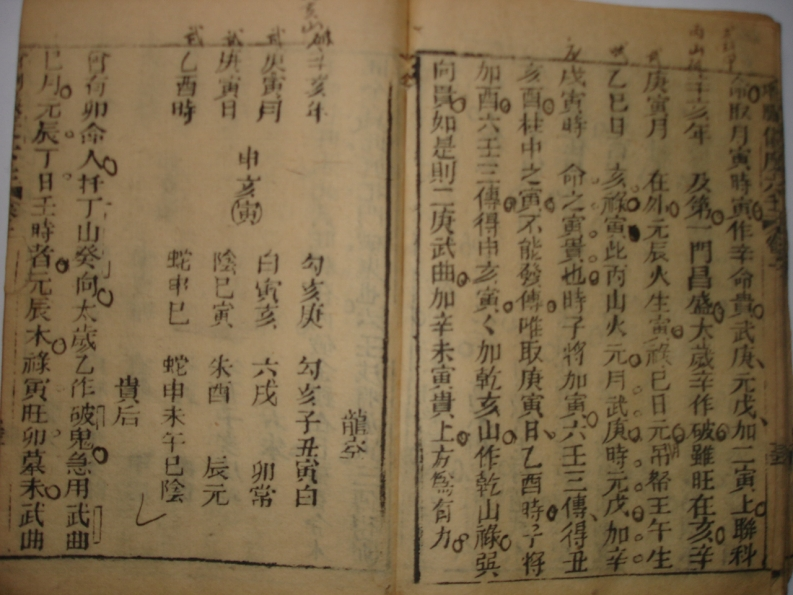 命取月寅時寅作辛命貴武庚元戊加二寅上聯科
辛亥年　及第一門昌盛太歲辛作破雖旺在亥辛
庚寅月　在外元辰火生寅祿巳日元吊祭王午生
乙巳日　亥祿寅此丙山火元月武庚時元戊加辛
戊寅時　命之寅貴也時子將加寅六壬三傳得丑
亥酉柱中之寅不能發傳唯取庚寅日乙酉時子將
加酉六壬三傳得申亥寅〻加乾亥山作乾山祿與
向貴如是則二庚武曲加辛未寅貴上方為有力
辛亥年
武 庚寅月
武 庚寅日
武 乙酉時
申亥寅
勾亥庚
白寅亥
陰巳寅
蛇申巳
龍
勾亥子丑寅白
六戌　卯常
朱酉　辰元
蛇申未午巳陰
貴后
曾有卯命人扦丁山癸向太歲乙作破鬼急用武曲
巳月元辰丁日壬時者元辰木祿寅旺卯墓未武曲